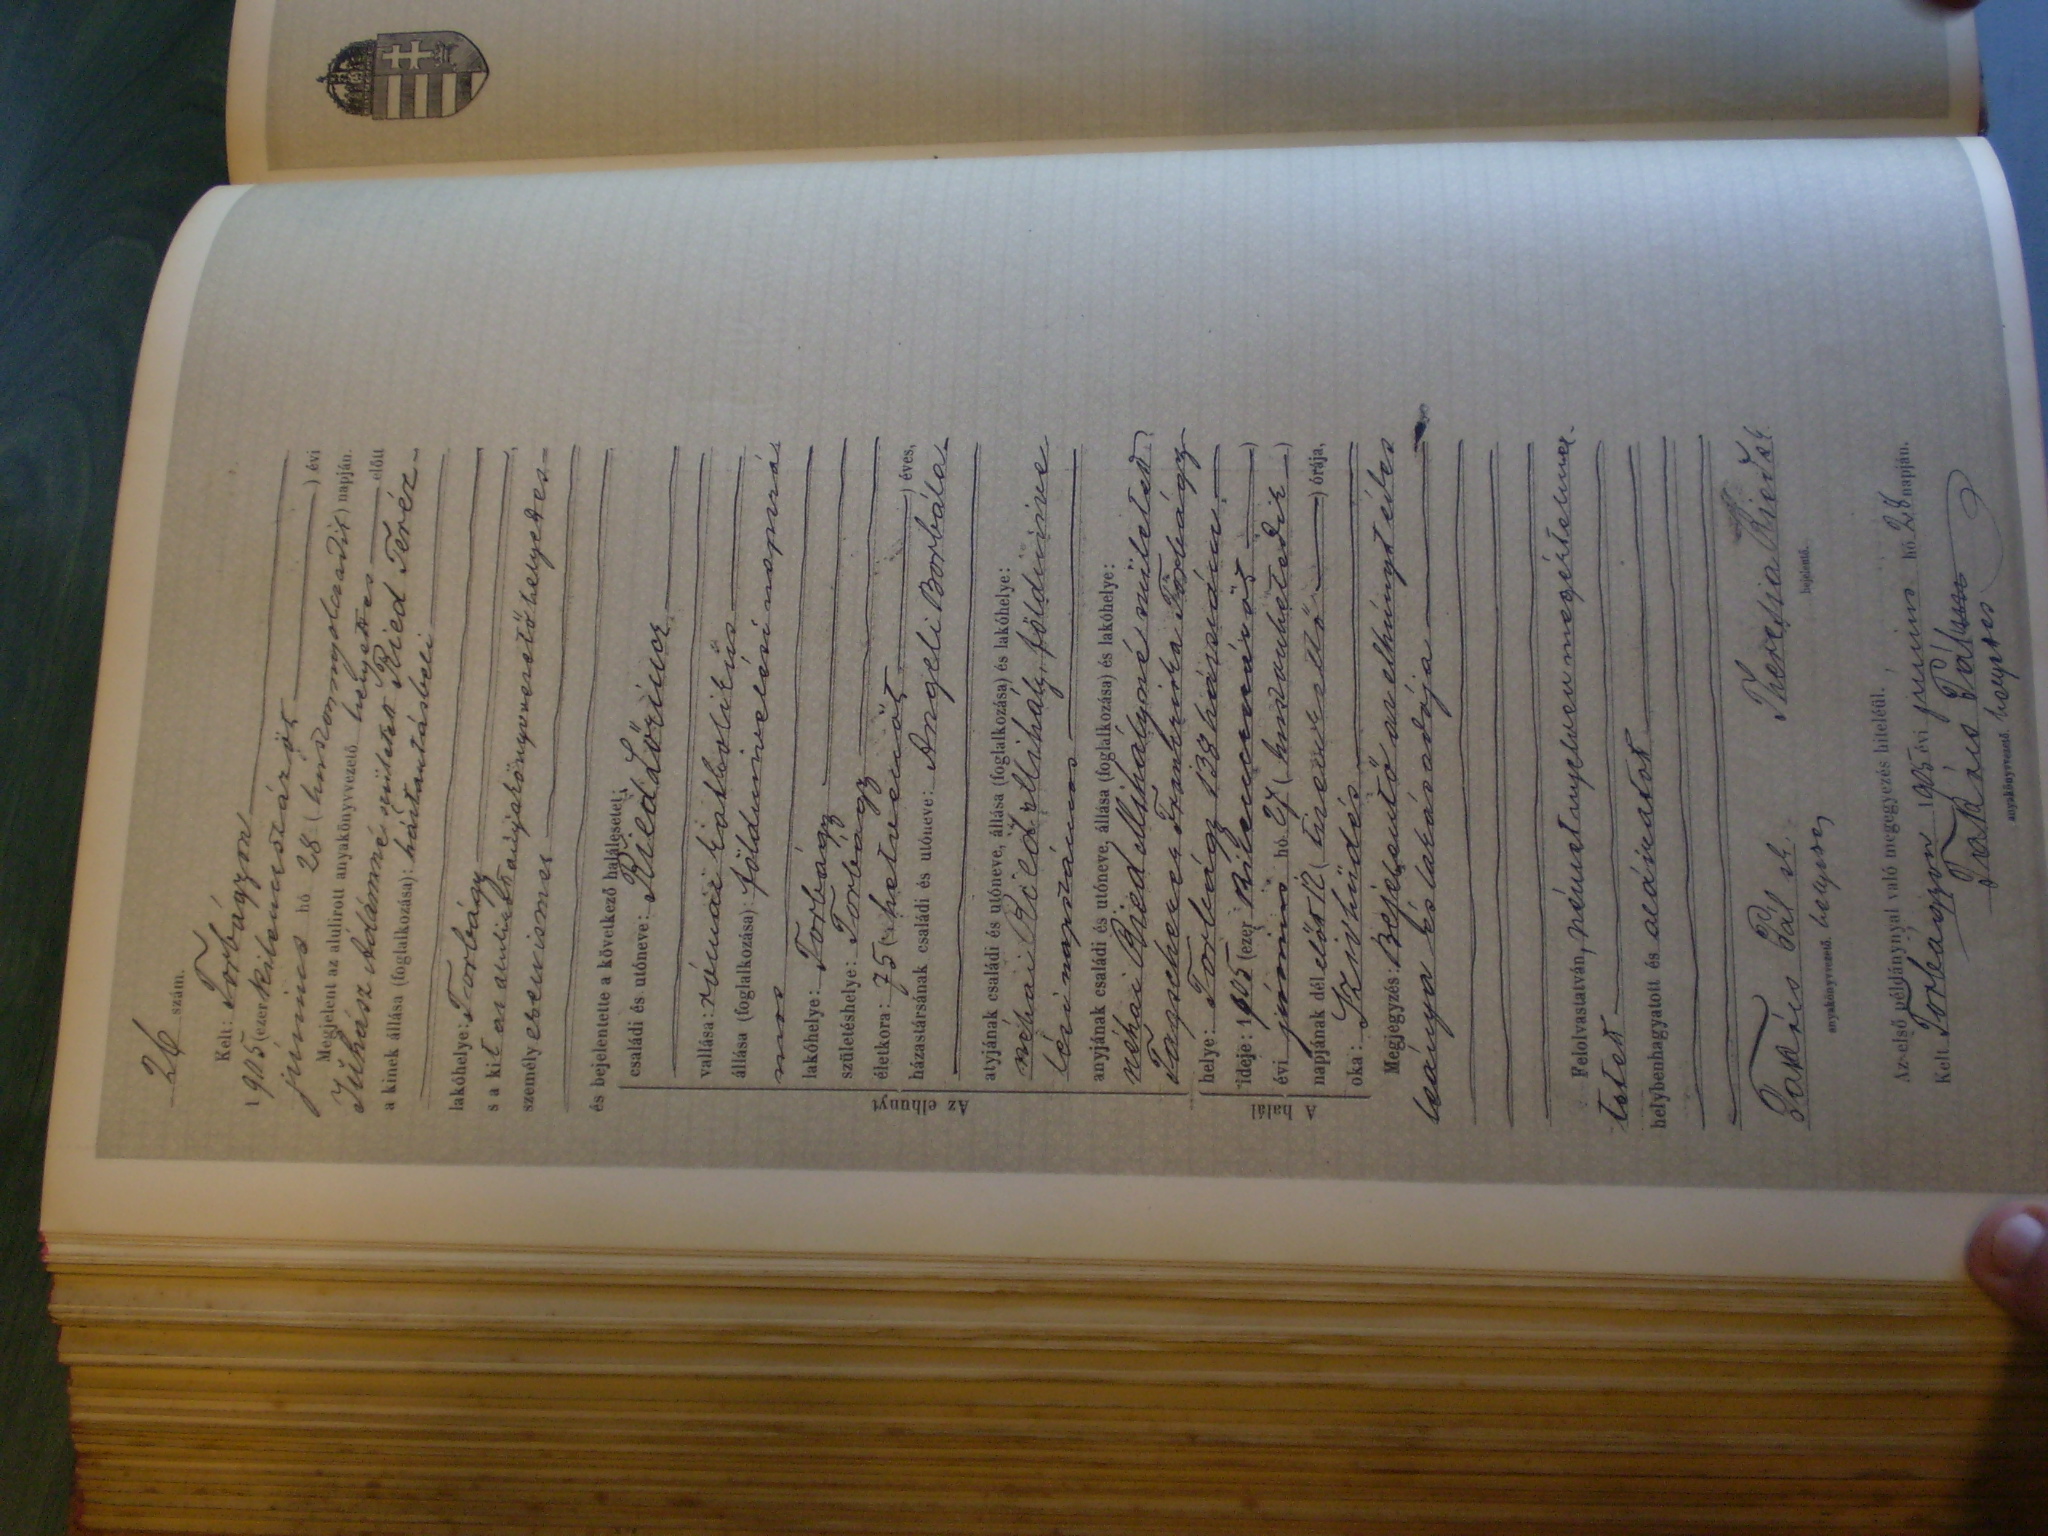 26 szám.
Kelt: Torbágyon
1905 (ezerkilencszázöt) évi
június hó 28 (huszonnyolczadik) napján.
Megjelent az alulirott anyakönyvezető helyettes előtt
Juhász Ádámné született Ried Teréz
a kinek állása (foglalkozása): háztartásbeli
lakóhelye: Torbágy
s a kit az alulirott anyakönyvvezető helyettes
személyesen ismer
és bejelentette a következő halálesetet:
Az elhunyt
családi és utóneve: Rild Lőrincz
vallása: római katholikus
állása (foglalkozása): földmivelési napszá
mos
lakóhelye: Torbágy
születéshelye: Torbágy
életkora: 75 (hetvenöt) éves,
házastársának családi és utóneve: Angeli Borbála
atyjának családi és utóneve, állása (foglalkozása) és lakóhelye:
néhai Mihály, földmive
lési napszámos
anyjának családi és utóneve, állása (foglalkozása) és lakóhelye:
néhai Ried Mihályné született
Franciska Torbágy
A halál
helye: Torbágy 138 házszám
ideje: 1905 (ezer kilenczszázöt)
évi június hó 27 (huszonhetedik)
napjának dél előtt 12 (tizenkettő) órája,
oka: Szivhűdés
Megjegyzés: Bejelentő az elhúnyt édes
leánya és lakásadója
Felolvastatván, német nyelven megértelmez
tetett
helybenhagyatott és aláiratott
Takács Pál sk. Theresia Ried sk.
anyakönyvvezető. helyettes bejelentő.
Az első példánynyal való megegyezés hiteléül.
Kelt Torbágyon 1905 évi június hó 28 napján.
Takács Pál
anyakönyvvezető. helyettes